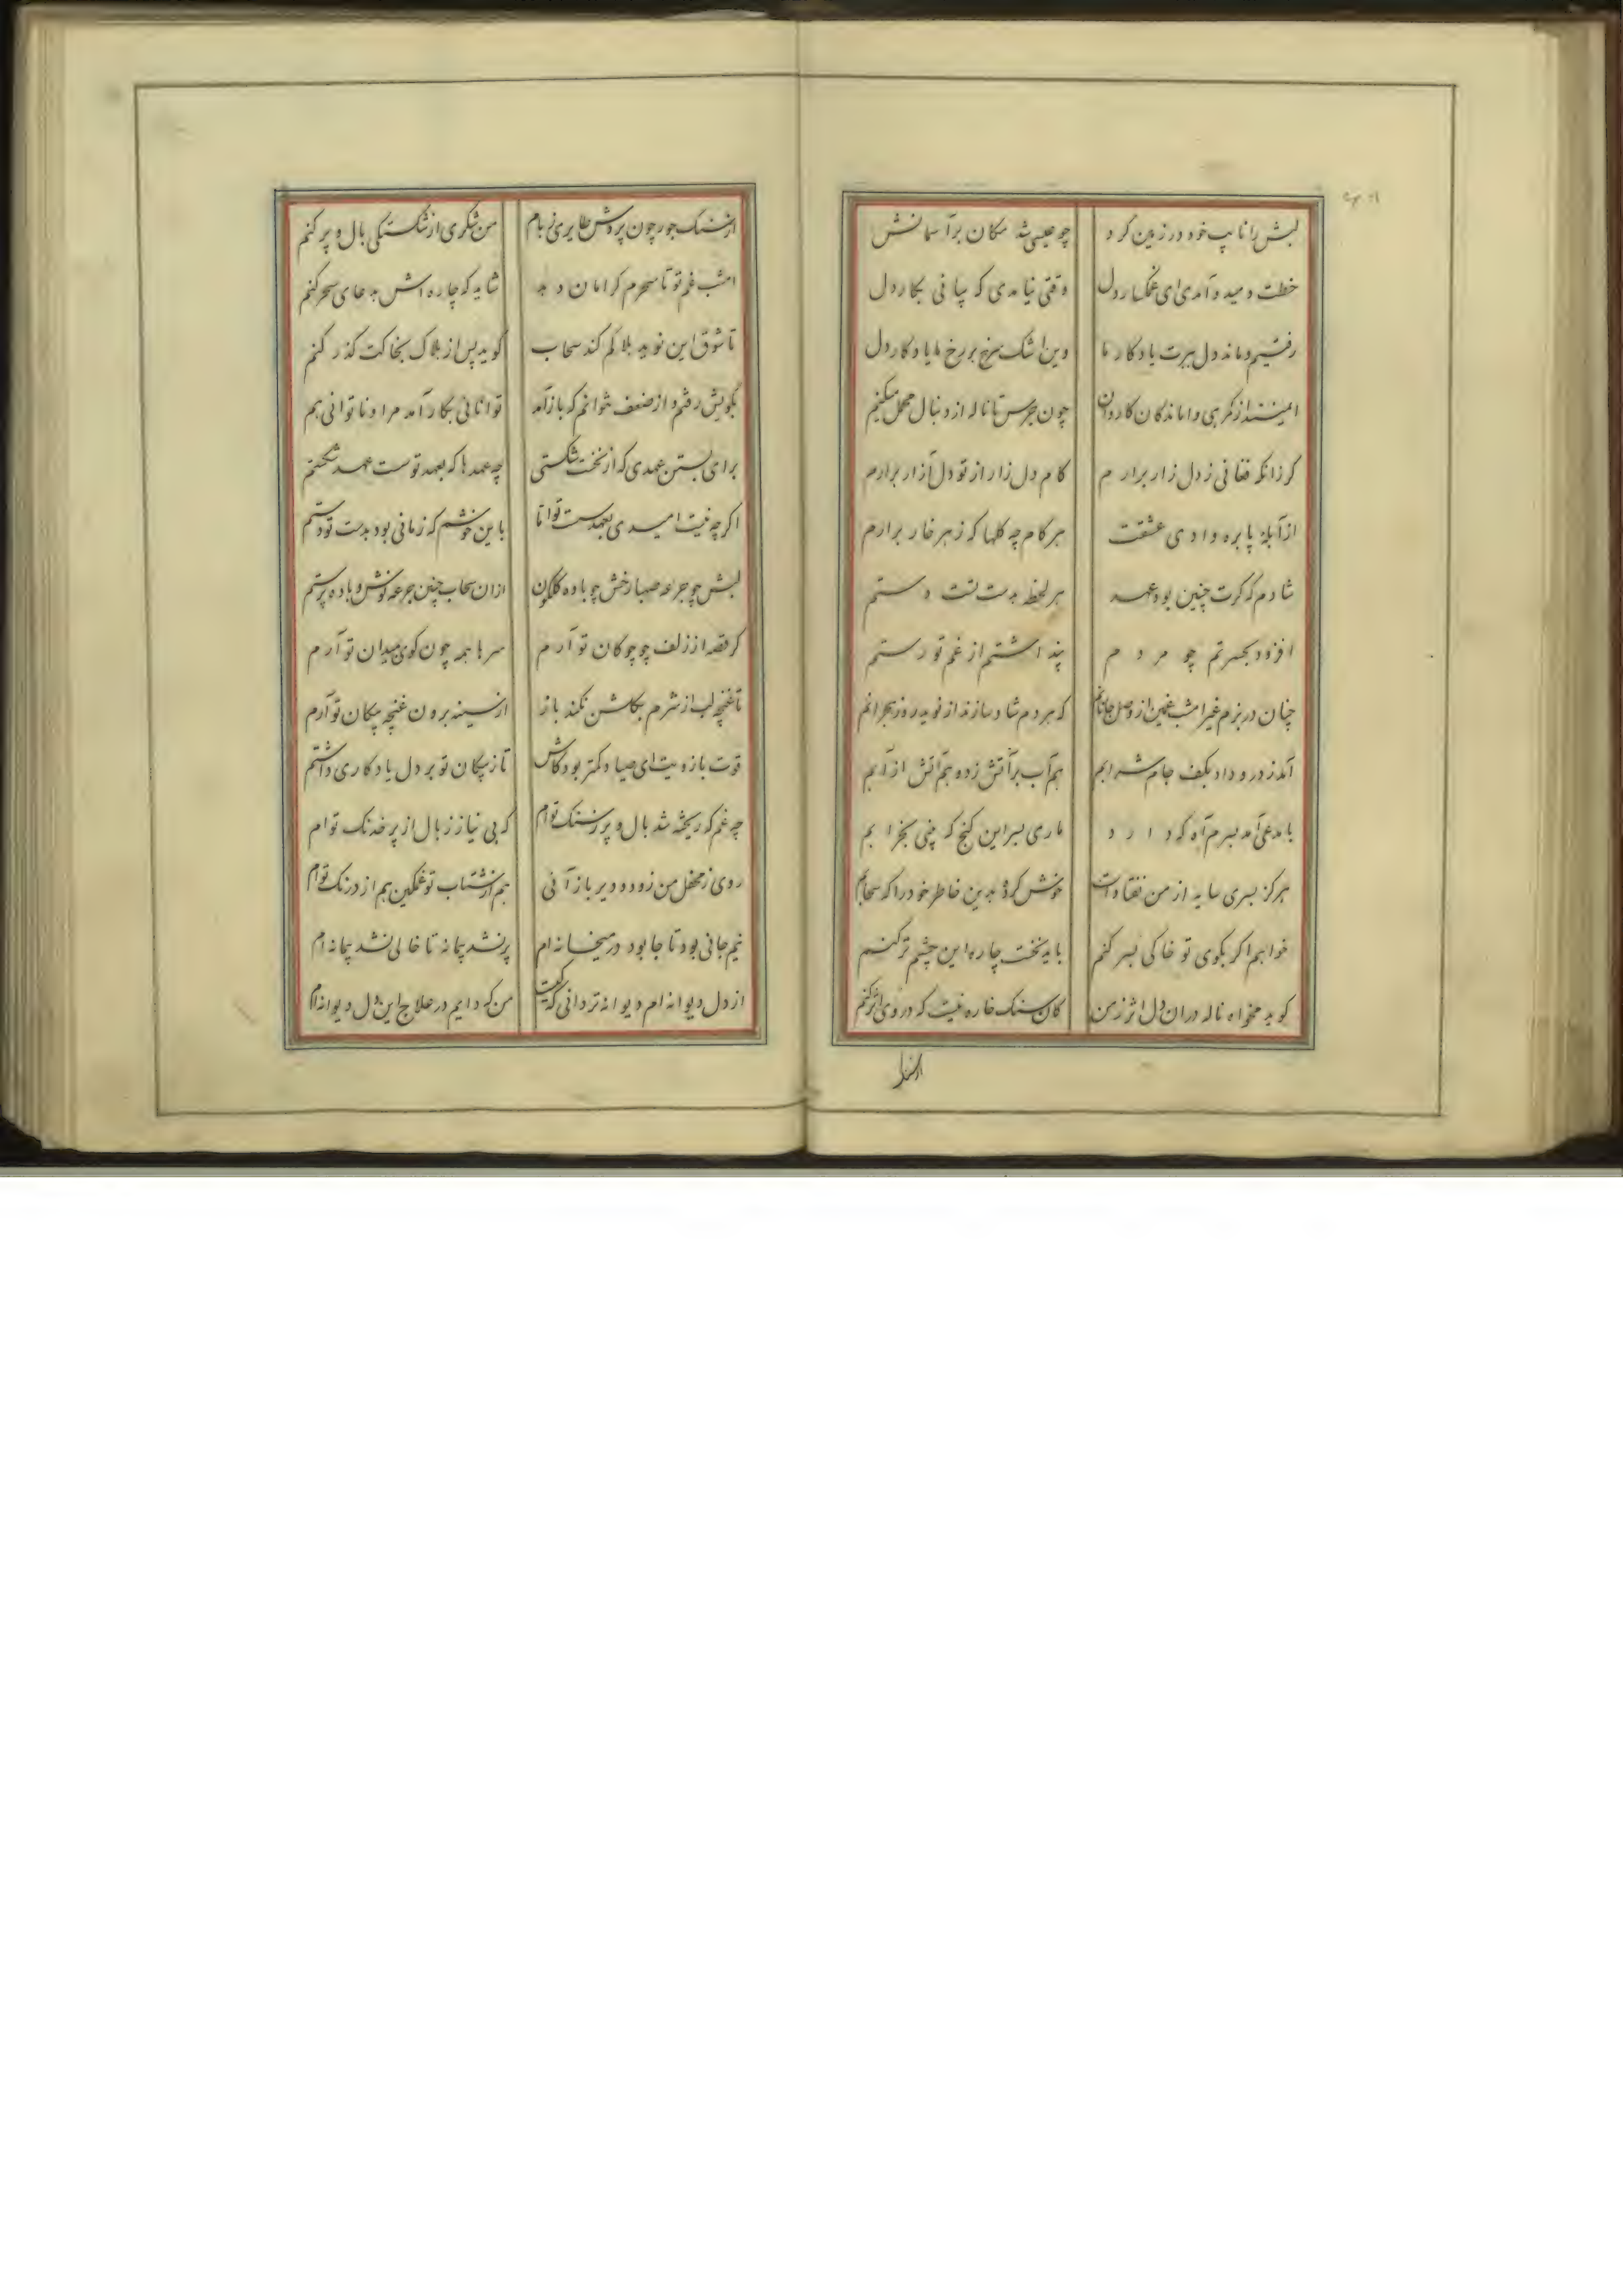 لبش را نایب خود در زمین کرد
چو عیسی شد مکان بر آسمانش
خطت دمید و آمدی ای غمگسار دل
وقتی نیامدی که بیائی بکار دل
رفتیم و ماند دل ببرت یادگار ما
وین اشک سرخ بر رخ ما یادگار دل
ایمنند از گمرهی واماندگان کاروان
چون جرس تا ناله از دنبال محمل میکنیم
کر زانکه فغانی ز دل زار برارم
کام دل زار از تو دل آزار برارم
از آبلهٔ پا بره وادی عشقت
هر کام چه کلها که ز هر خار برارم
شادم که کرت چنین بود عهد
هر لحظه بدست تست دستم
افزود بحسرتم چو مردم
پنداشتم از غم تو رستم
چنان در بزم غیر امشب غمین از وصل جانانم
که هر دم شاد سازند از نوید روز هجرانم
آمد ز در و داد بکف جام شرابم
هم آب بر آتش زد و هم آتش از آبم
با مدعی آمد بسرم آه که دارد
ماری بسر این کنج که بینی بخرابم
هرکز بسری سایه از من نفتادست
خوش کردهٔ بدین خاطر خود را که سحابم
خواهم اکر بکوی تو خاکی بسر کنم
باید نخست چاره این چشم تر کنم
کوید مخواه ناله در ان دل اثر ز من
کان سنک خاره نیست که در وی اثر کنم
از سنک
از سنک جور چون پردش طایری ز بام
من شکری از شکستکی بال و پر کنم
امشب غم تو تا سحرم کر امان دهد
شاید که چاره اش بدعای سحر کنم
تا شوق این نوید بلا کم کند سحاب
کوید پس از هلاک بخاکت کذر کنم
بکویش رفتم و از ضعف نتوانم که باز آمد
توانائی بکار آمد مرا و ناتوانی هم
برای بستن عهدی که از نخست شکستی
چه عهدها که بعهد تو سست عهد شکستم
اکر چه نیست امیدی بعهد سست تو اما
باین خوشم که زمانی بود بدست تو دستم
لبش چو جرعه صهبا رخش چو باده کلکون
از ان سحاب چنین جرعه نوش و باده پرستم
کر قصه از زلف چو چوکان تو آرم
سرها همه چون کوی بمیدان تو آرم
تا غنچه لب از شرم بکلشن نکند باز
از سینه برون غنچه پیکان تو آرم
قوت بازویت ای صیاد کمتر بود کاش
تا ز پیکان تو بر دل یادکاری داشتم
چه غم که ریخته شد بال و پر ز سنک توام
که بی نیاز ز بال از پر خدنک توام
روی ز محفل من زود و دیر باز آئی
هم از شتاب تو غمکین هم از درنک توام
نیم جانی بود تا جا بود در میخانه ام
پر نشد پیمانه تا خالی نشد پیمانه ام
از دل دیوانه ام دیوانه تر دانی که کیست
من که دایم در علاج این دل دیوانه ام